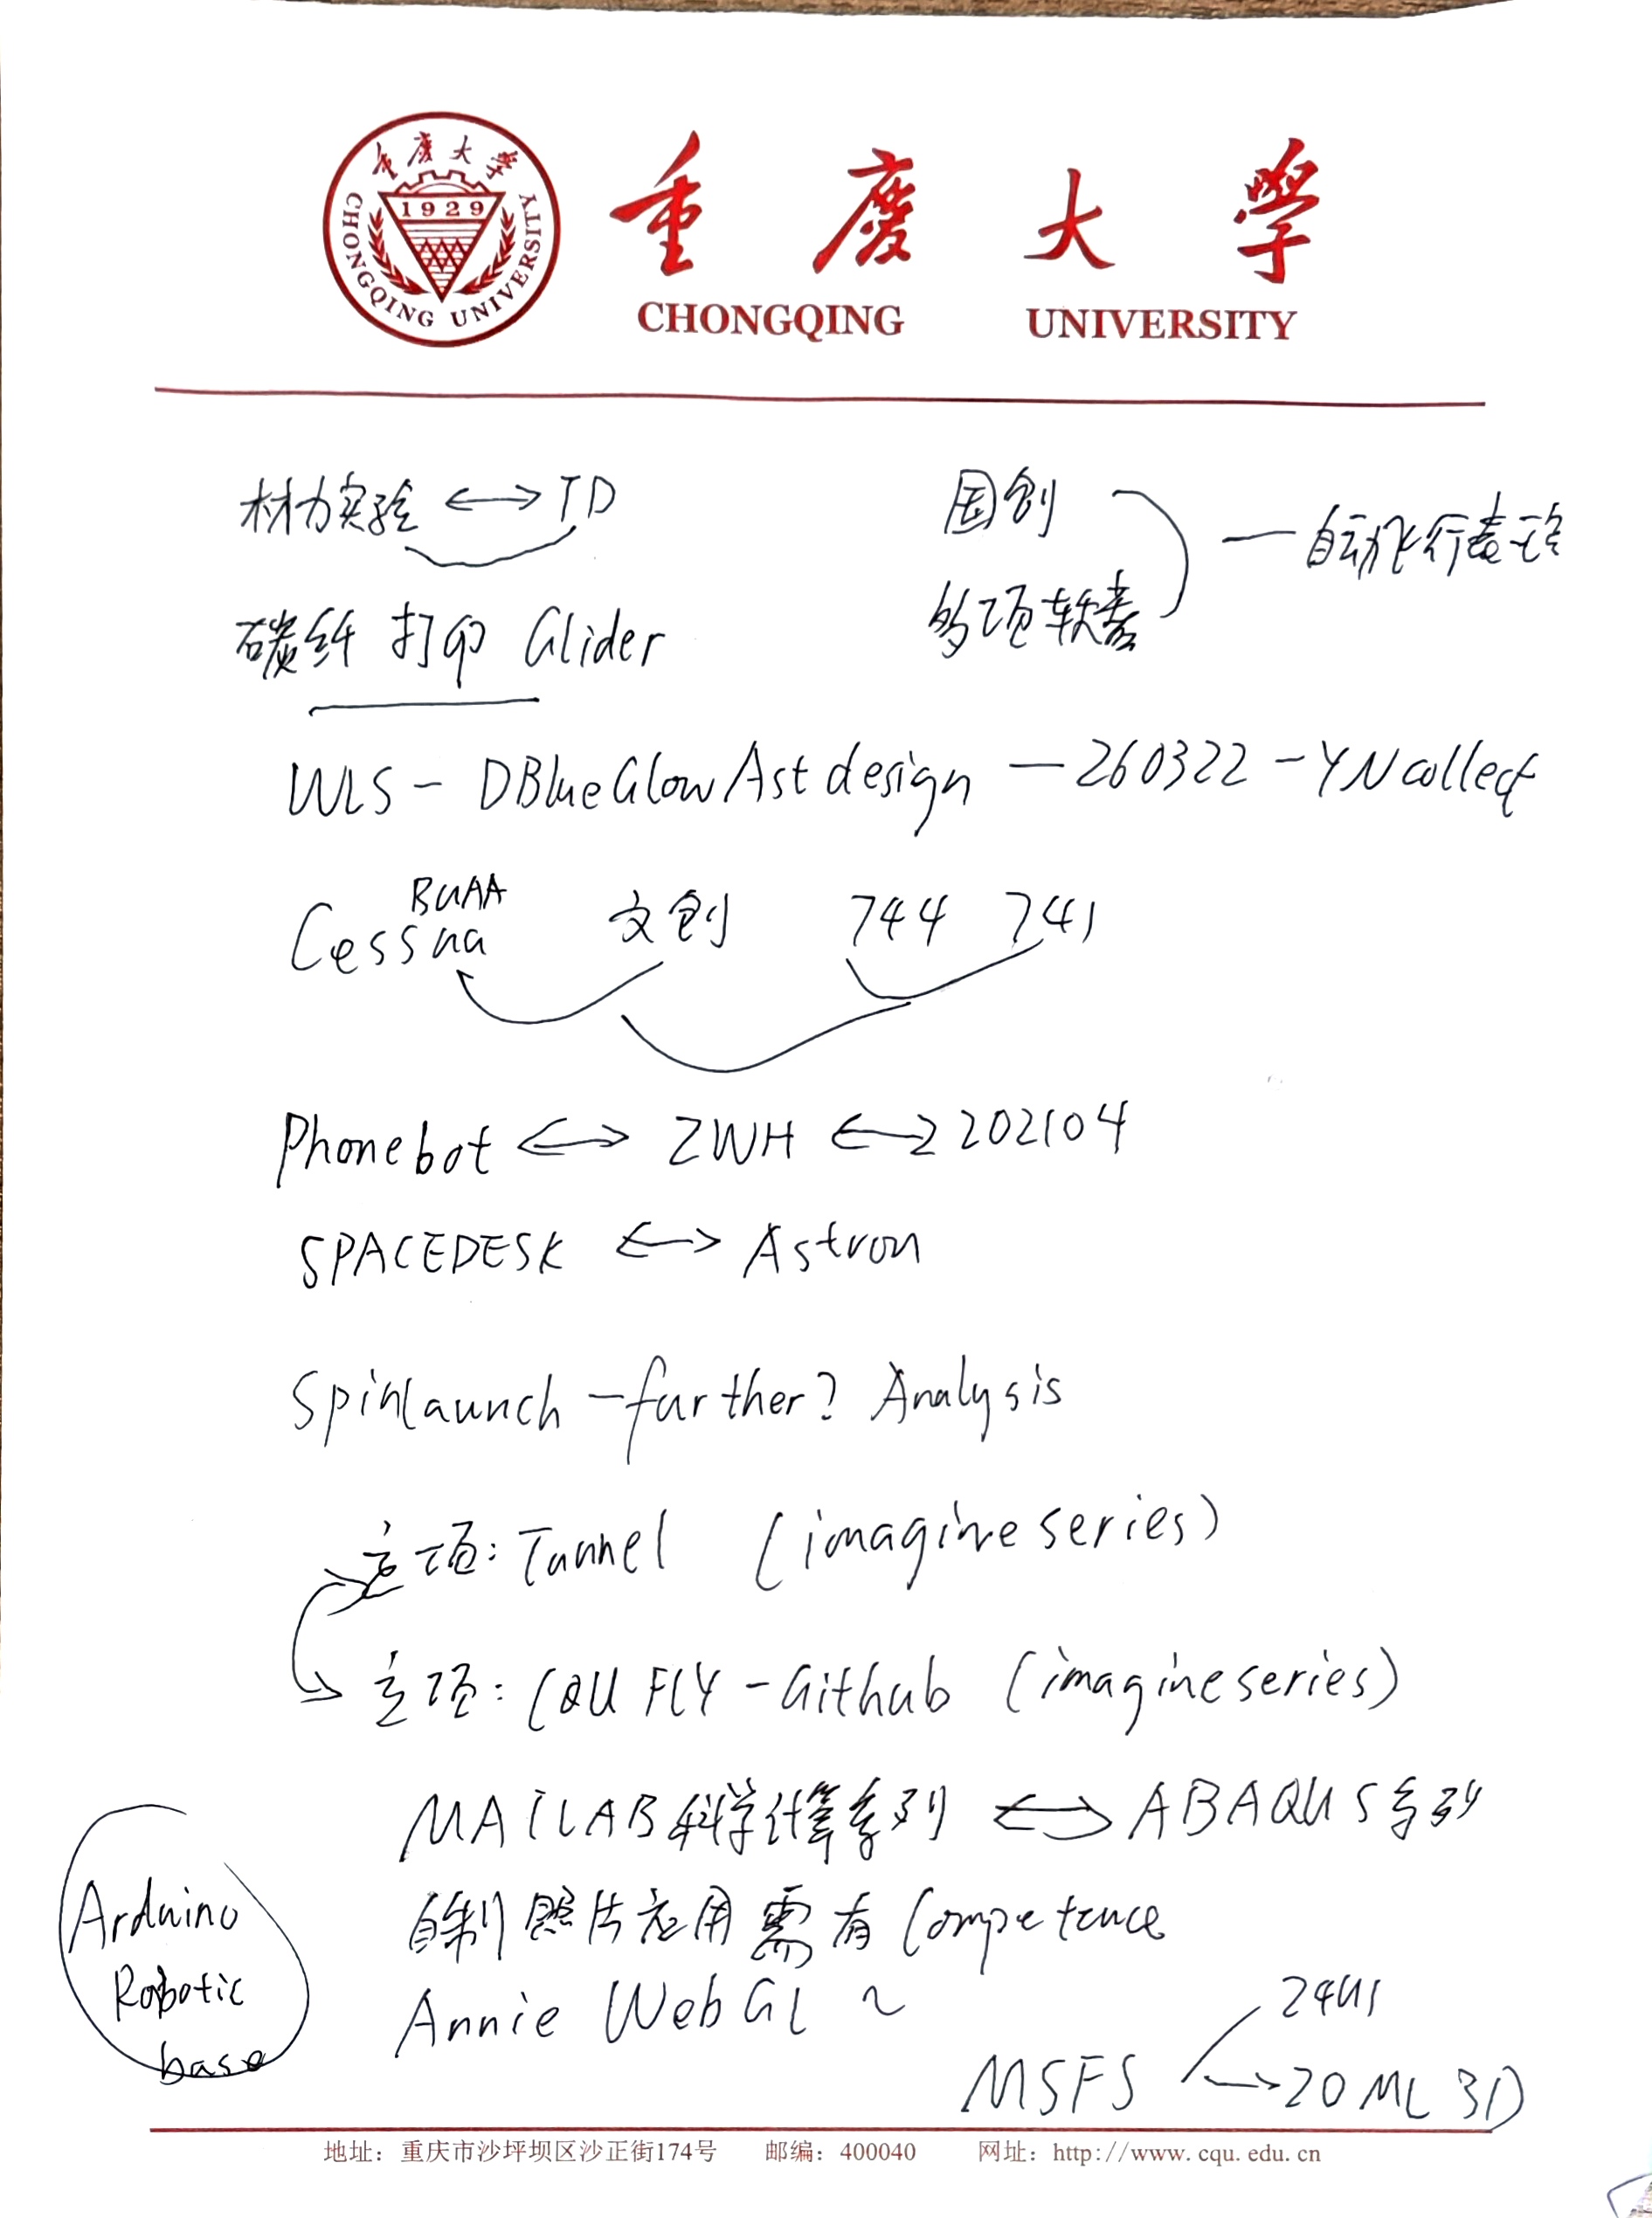 重庆大学
CHONGQING UNIVERSITY
1929
重 慶 大 學
CHONGQING UNIVERSITY
材力实验 ↔ TD
国创
自动飞行
碳纤 打印 Glider
多项软著
WLS - DBlueGlowAstdesign — 260322 - YNcollect
BUAA
Cessna 文创 744 741
Phonebot ↔ ZWH ↔ 2202104
SPACEDESK ↔ Astron
Spinlaunch - further? Analysis
主项: Tunnel (imagine series)
主项: CQU FLY - Github (imagine series)
MATLAB科学计算系列 ↔ ABAQUS系列
自制照片应用需有Competence
Annie WebGL ~
Arduino
Robotic
base
MSFS → 20 ML 3D
地址：重庆市沙坪坝区沙正街174号 邮编：400040 网址：http://www.cqu.edu.cn